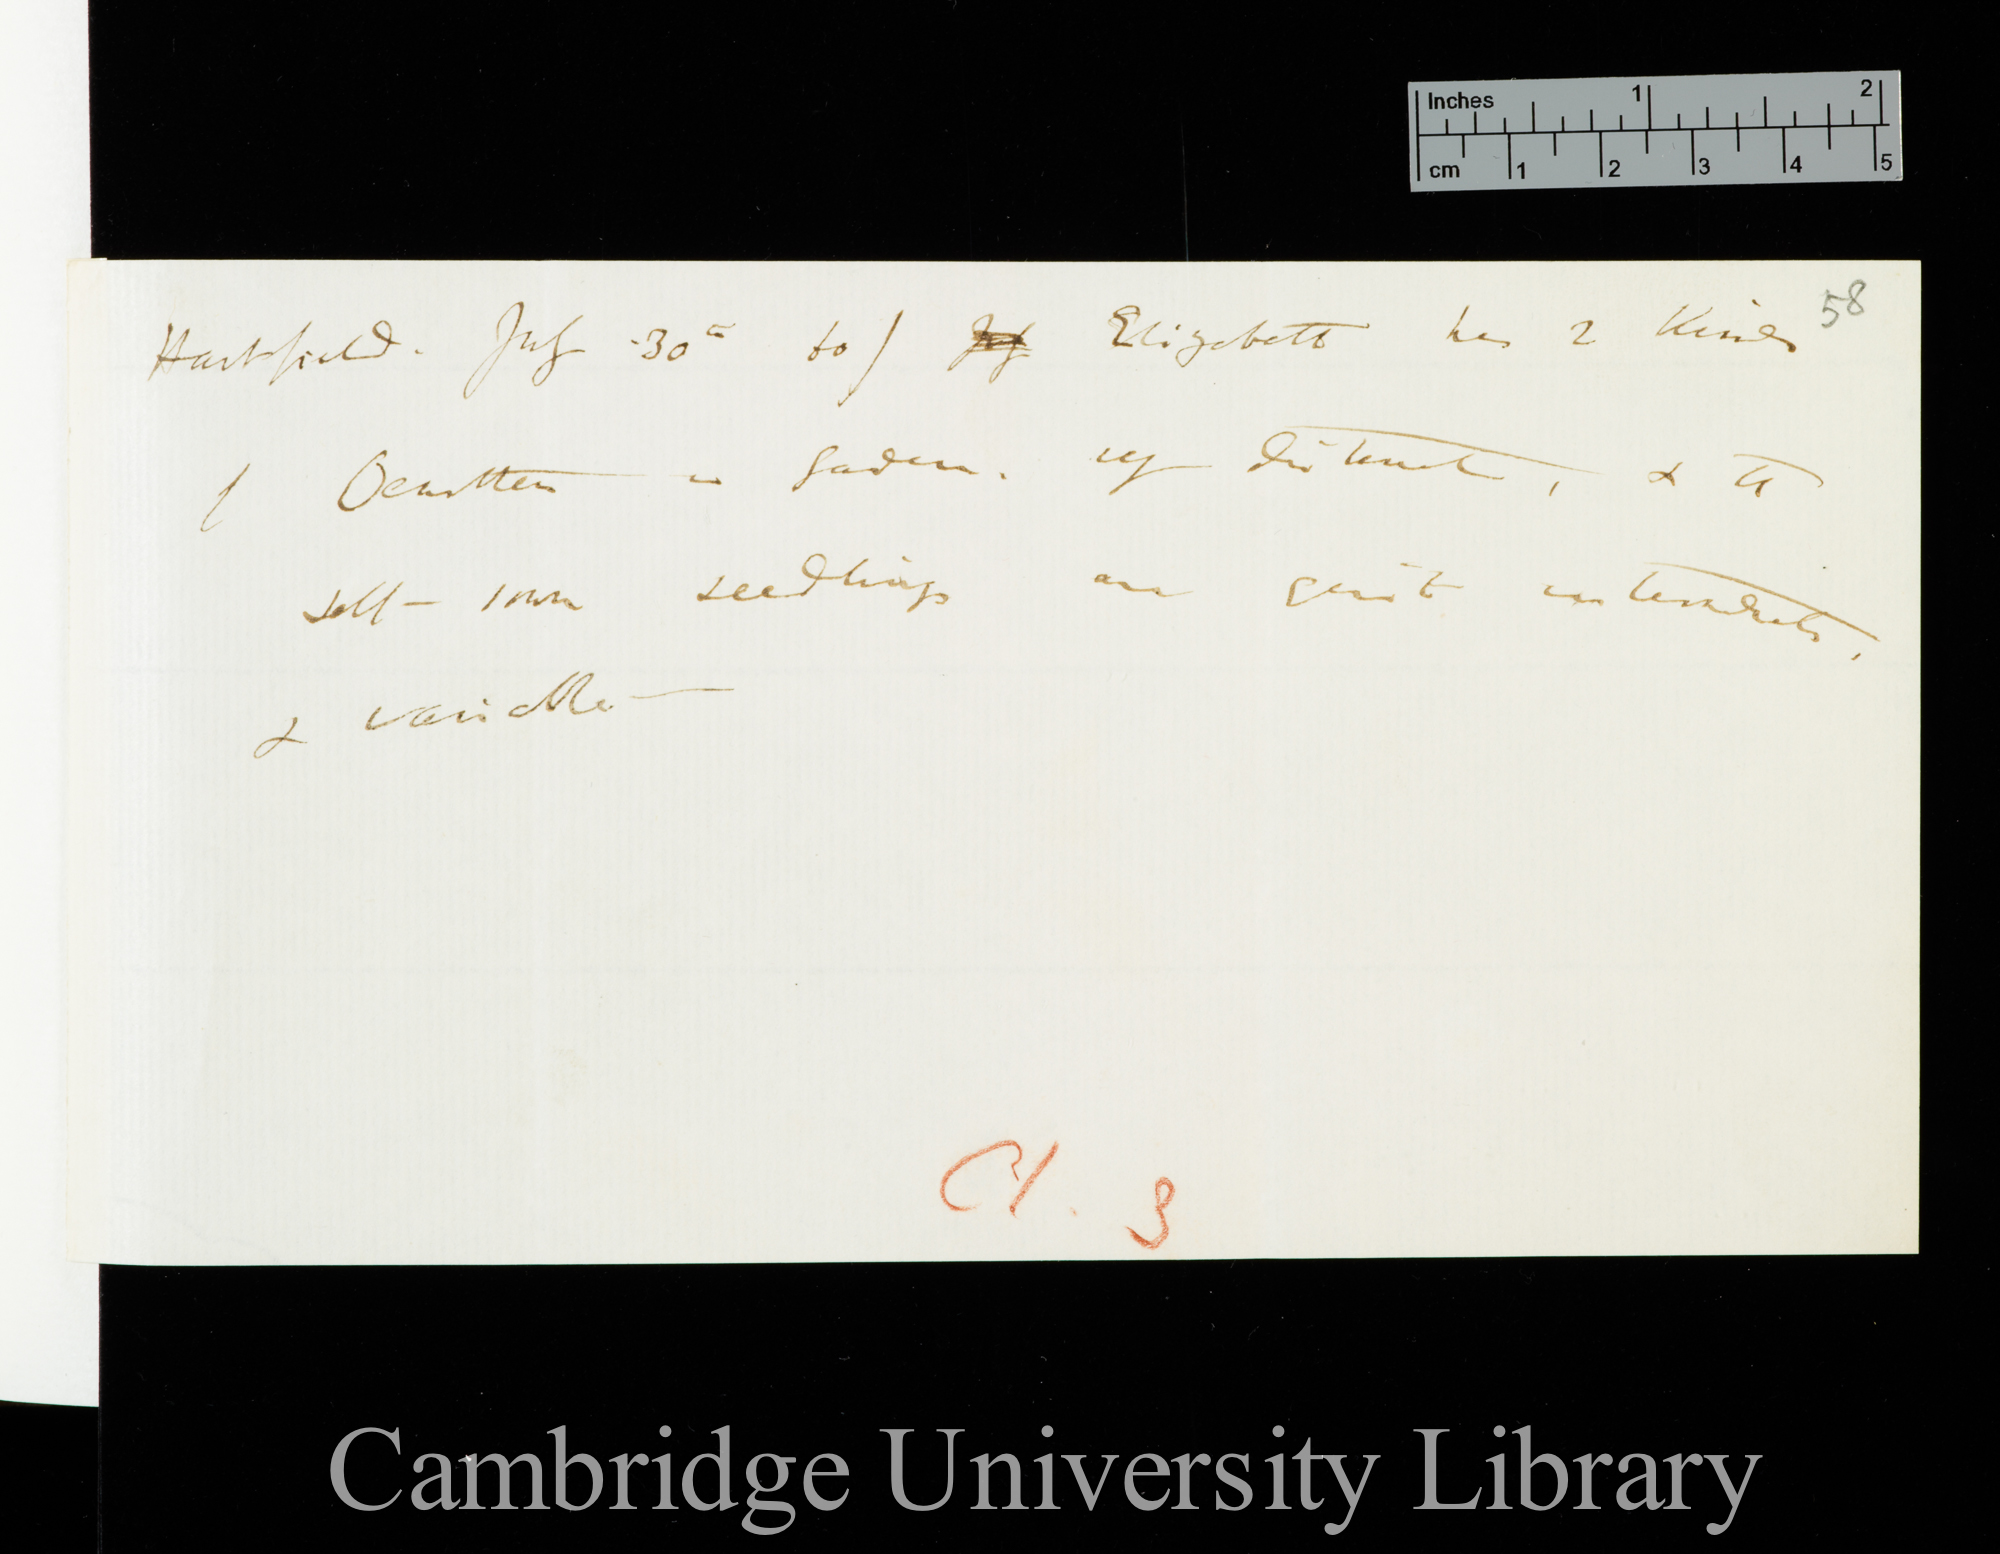 Inches 1 2
cm 1 2 3 4 5
58
Hartfield. July 30th /60/ Elizabeth has 2 kinds
of Oenothera in garden. very distinct, & the
self-sown seedlings are quite intermediate,
& variable
Ch. 3
Cambridge University Library